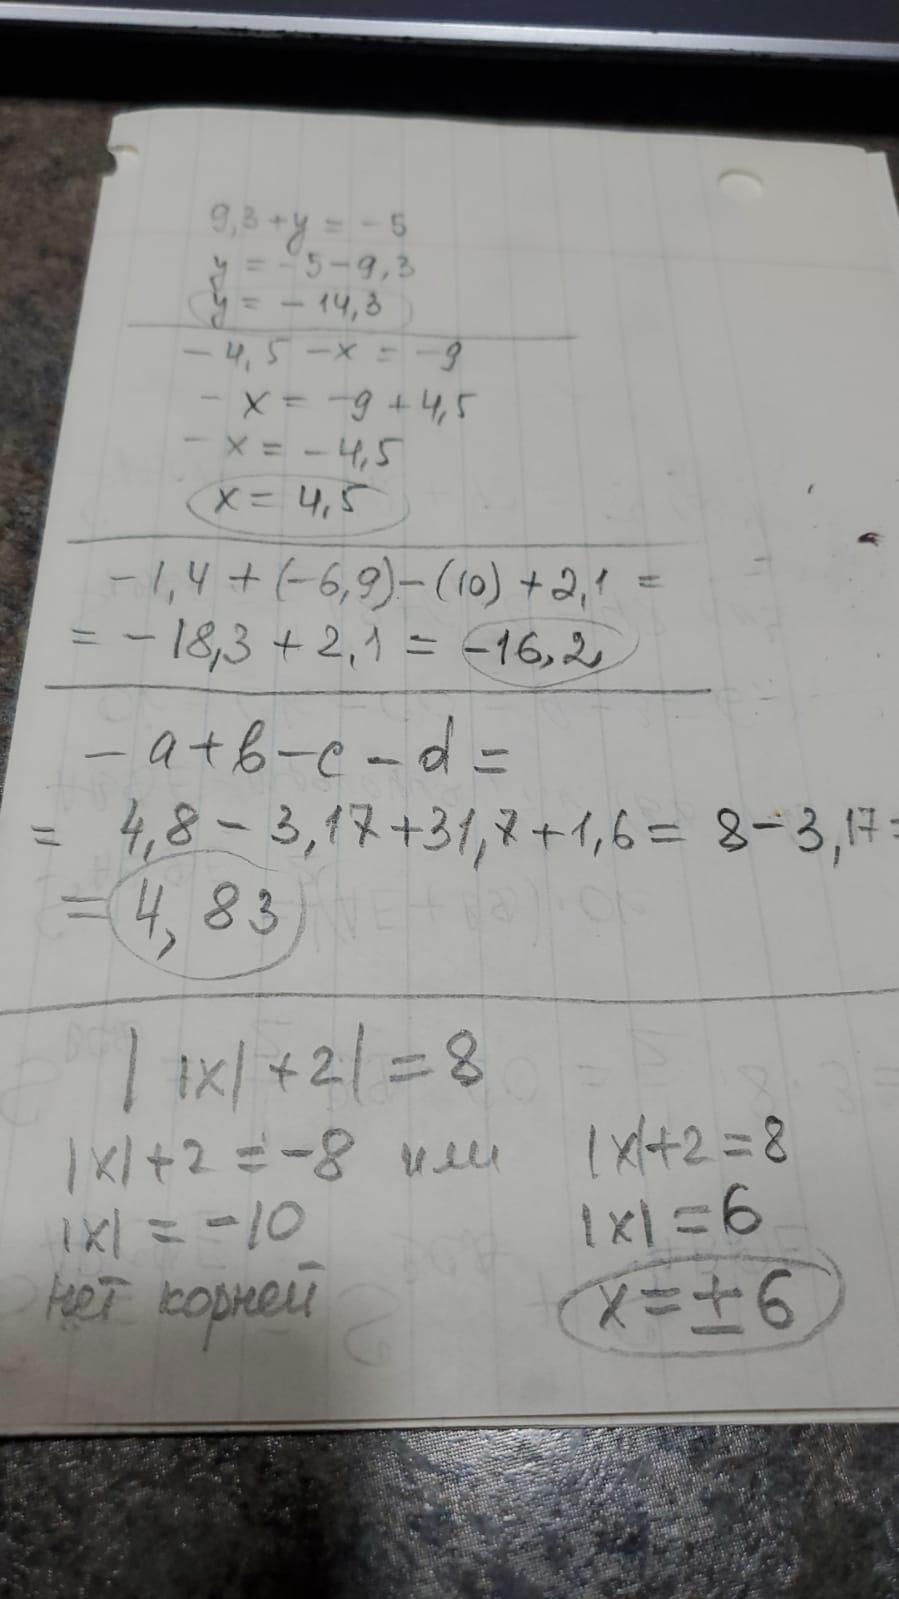 9,3+y = -5
y = -5-9,3
y = -14,3
-4,5 -x = -9
-x = -9 + 4,5
-x = -4,5
x = 4,5
-1,4 + (-6,9) - (10) + 2,1 =
= -18,3 + 2,1 = -16,2
-a+b-c-d =
= 4,8 - 3,17+31,7+1,6 = 8-3,17=
= 4,83
| |x| +2| = 8
|x|+2 = -8 или |x|+2 = 8
|x| = -10 |x| = 6
нет корней x = ±6